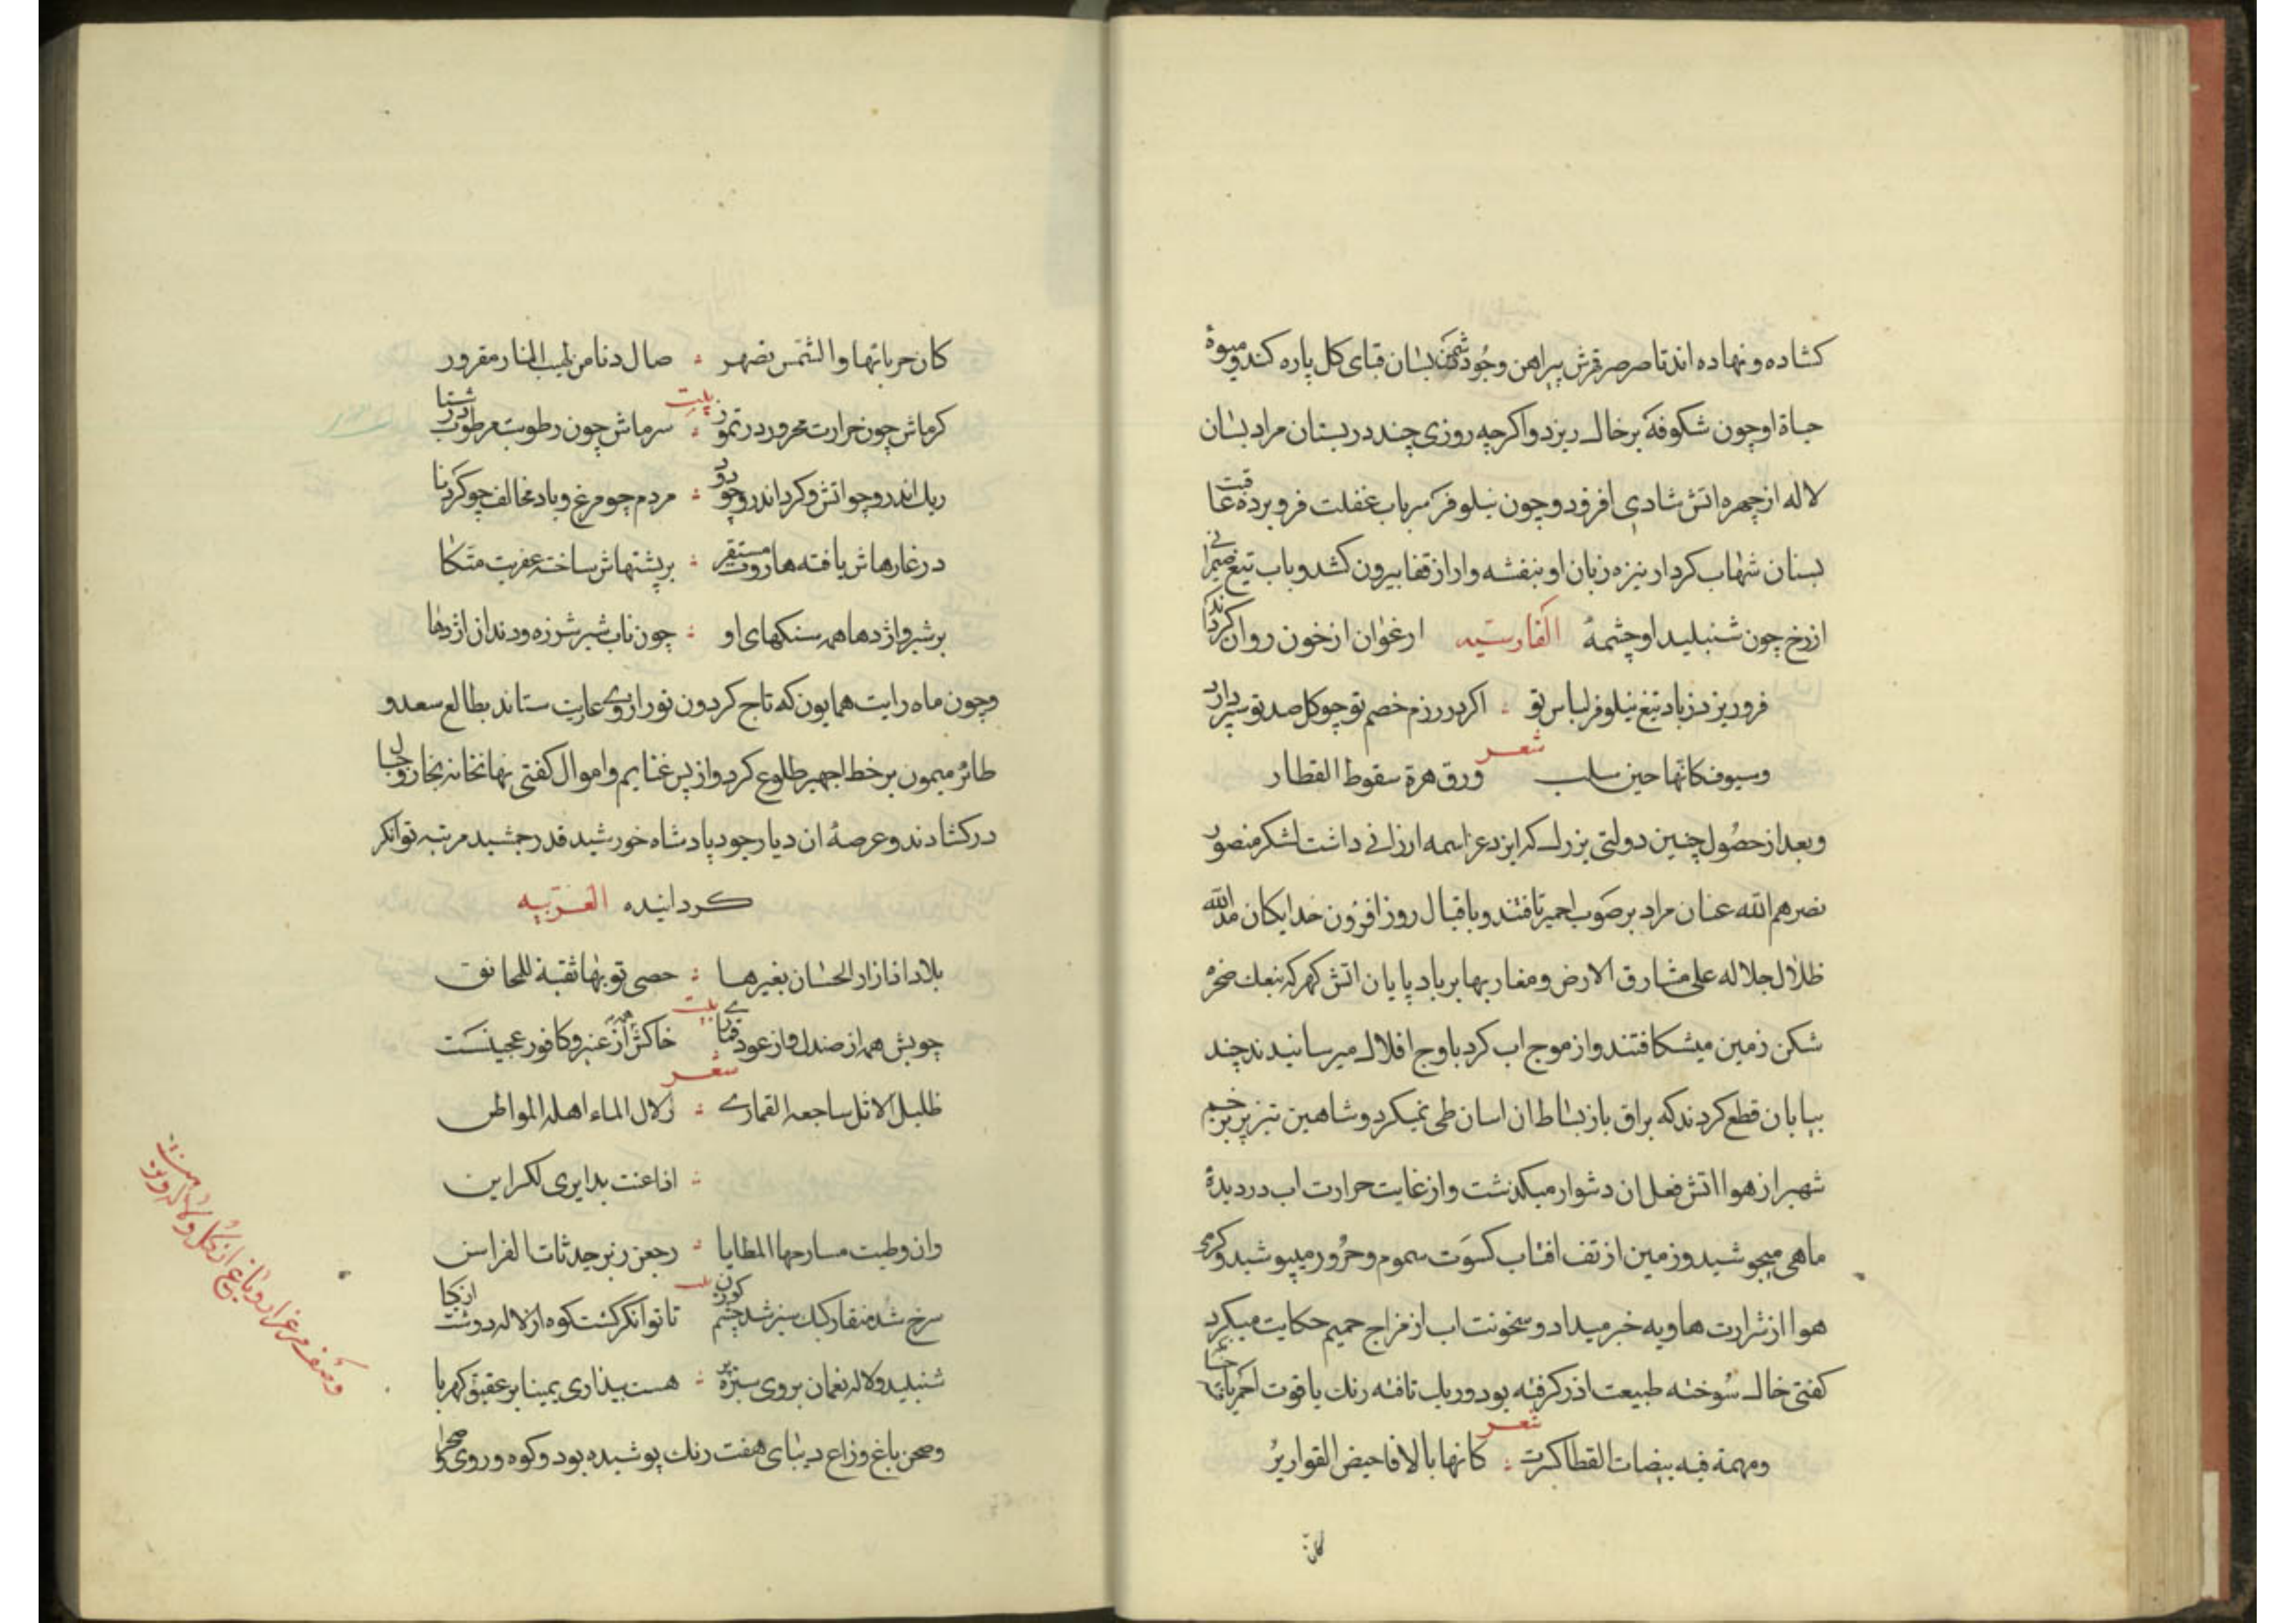 کشاده و نهاده اند تا صرصر قهرش پیراهن وجود دشمن بسان قبای کل پاره کند و میوهٔ
حیاة او چون شکوفه بر خاک ریزد و اکرچه روزی چند در بستان مراد بسان
لاله از چهره اتش شادی افروزد و چون نیلوفر سر باب غفلت فرو برده عاقبت
بسنان شهاب کردار نیزه زبان او بنفشه وار از قفا بیرون کشد و باب تیغ
از رخ چون شنبلید او چشمهٔ ارغوان از خون روان کرداند الفارسیه
فرو ریزد ز باد تیغ نیلوفر لباس تو اکر در رزم خصم تو چو کل صد تو سپر دارد
شعر
وسیوف کانها حین سلب ورق هزة سقوط القطار
و بعد از حصول چنین دولتی بزرک که ایزد عز اسمه ارزانی داشت لشکر منصور
نصرهم الله عنان مراد بر صوب اجمیر تافتند و باقبال روز افزون خدایکان مد الله
ظلال جلاله علی مشارق الارض و مغاربها بر باد پایان اتش کهر که بنعل صخره
شکن زمین میشکافتند و از موج اب کرد باوج افلاک میرسانیدند چند
بیابان قطع کردند که براق باز بساط ان اسان طی نمیکرد و شاهین تیز پر بزخم
شهپر از هوا اتش فعل ان دشوار میکذشت و از غایت حرارت اب در دیدهٔ
ماهی میجوشید و زمین از تف افتاب کسوت سموم و حرور میپوشید و کرمی
هوا از شرارت هاویه خبر میداد و سخونت اب از مزاج حمیم حکایت میکرد
کفتی خاک سوخته طبیعت اذر کرفته بود و ریک تافته رنک یاقوت احمر یافته
شعر
ومهمة فیه بیضات القطا کسرت کانها بالافاحیض القواریر
کان
کان حرباتها والشمس تصهر صال دنا من لهب النار مقرور
بیت
کرماش چون حرارت محرور در تموز سرماش چون رطوبت مرطوب در شتا
ریک اندرو چو اتش و کرد اندرو چو دود مردم چو مرغ و باد مخالف چو کردنا
در غارهاش یافته هاروت مستقر بر پشتهاش ساخته عفریت متکا
بر شیر و اژدها همه سنکهای او چون ناب شیر شرزه و دندان اژدها
و چون ماه رایت همایون که تاج کردون نور از وی عاریت ستاند بطالع سعد و
طائر میمون بر خط اجهیر طلوع کرد و از پس غنایم و اموال کفتی نهانخانه بحار و جبال
در کشادند و عرصهٔ ان دیار جود پادشاه خورشید قدر جمشید مرتبه توانکر
کردانیده العربیه
بلاد اذا زار الحسان بغیرها حصی توبها ثقبة للحانق
بیت
چوبش همه از صندل و از عود قماری خاکش همه از عنبر و کافور عجینست
شعر
ظلیل الاثل ساجعه القماری زلال الماء اهله المواطن
اذا عنت
وان وطیت مسارحها المطایا رجعن
بیت
سرخ شد منقار کبک سبز شد چشم کوزن تا توانکر کشت کوه از لاله و دشت از کیا
شنبلید و لاله نعمان بروی سبزه بر هست پنداری بمینا بر عقیق و کهربا
و صحن باغ و زاغ دیبای هفت رنک پوشیده بود و کوه و روی صحرا
وصف مرغزار و باغ از کل و لاله